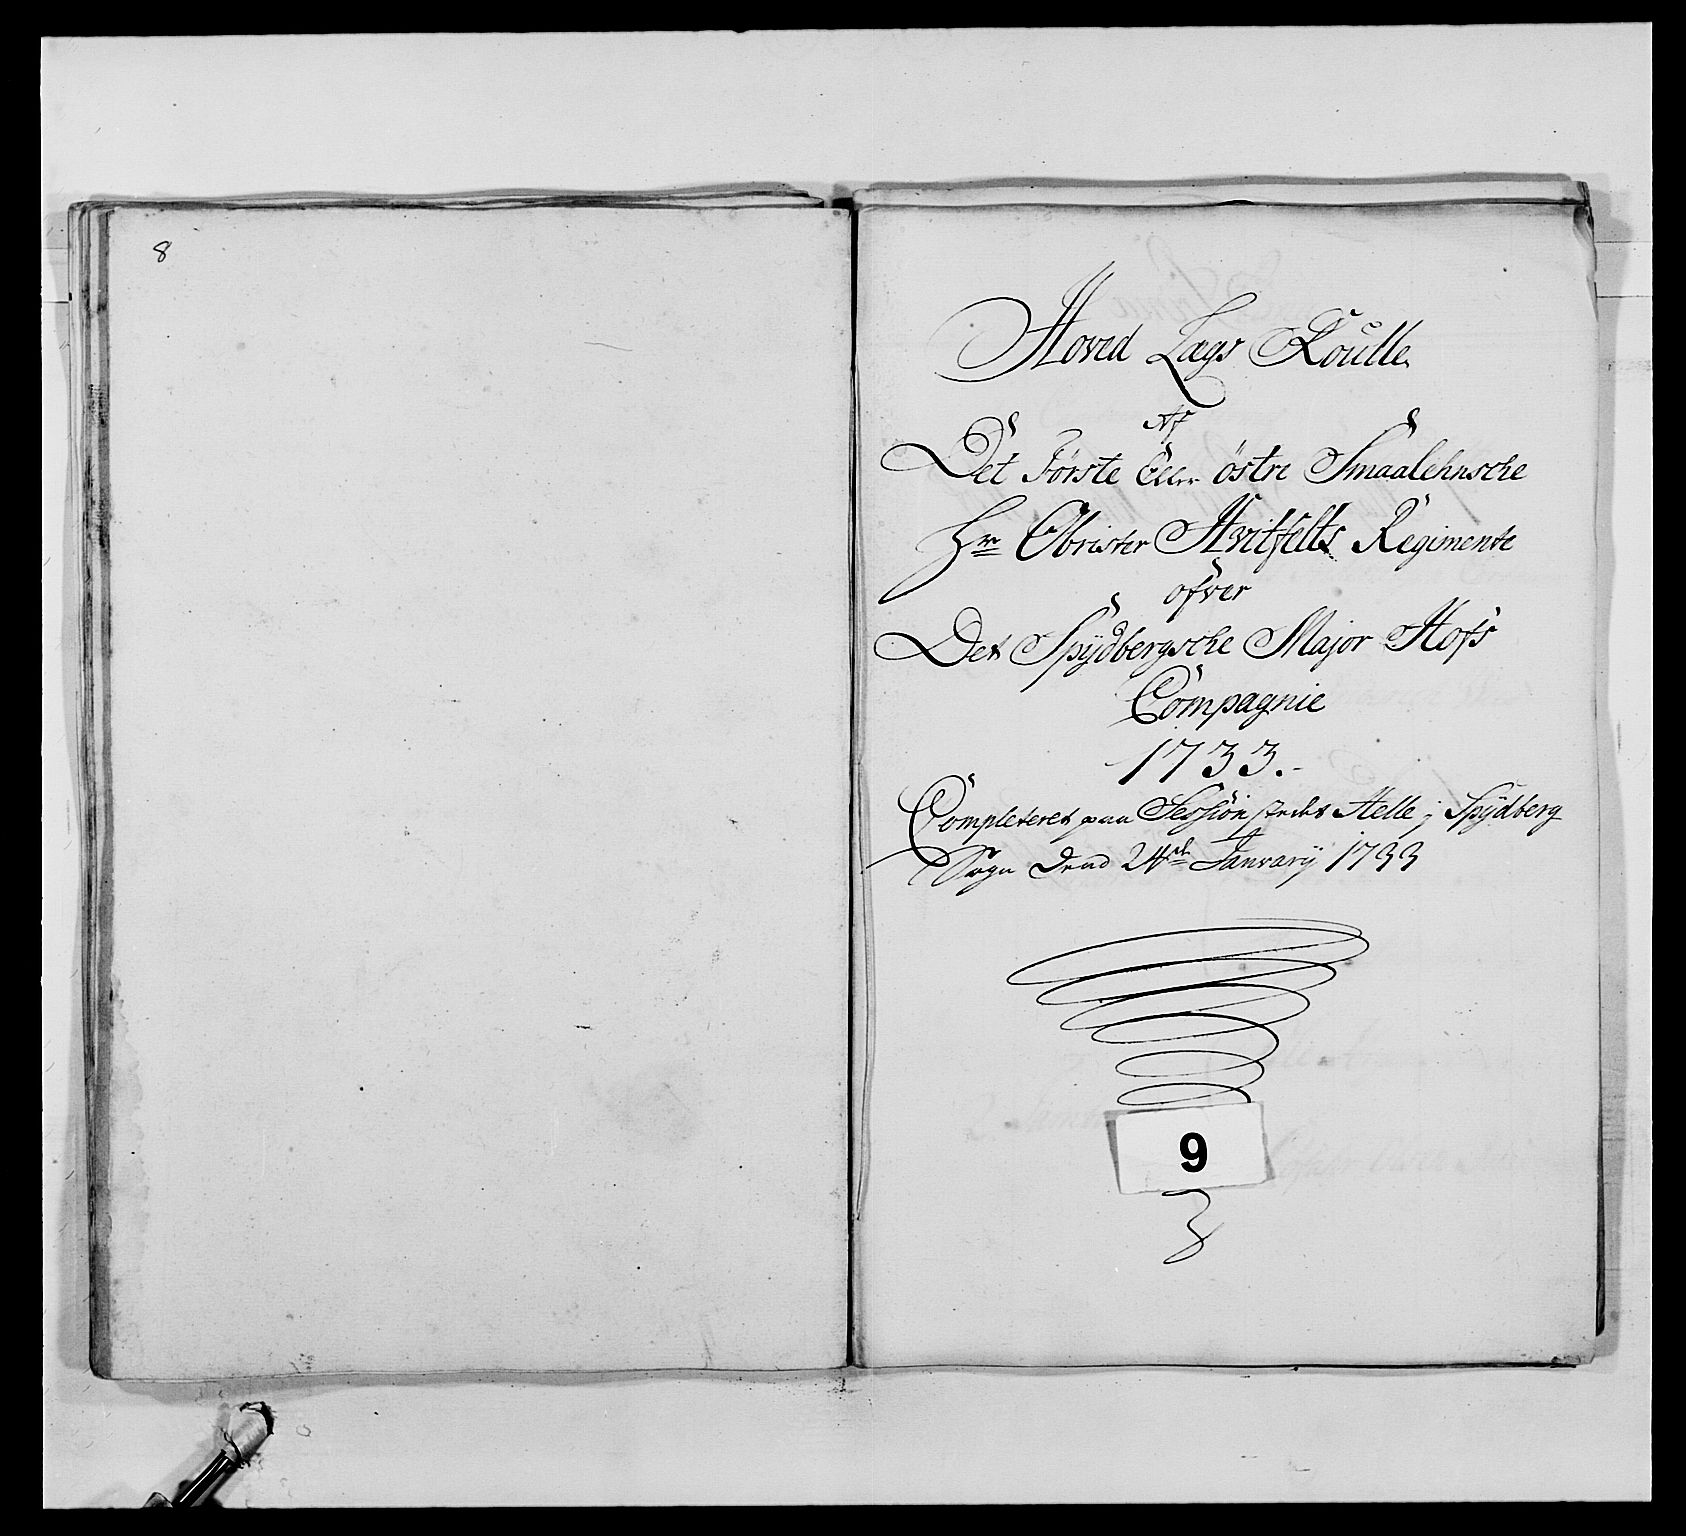 8
Hoved Lægs Roulle
Af
Det Förste Eller östre Smaalehnsche
Hr Obrister Hvitfelts Regimente
ofver
Det Spÿdbergsche Major Hofs
Compagnie
1733.-
Completeret paa Sessions stedet Helle j Spÿdberg
Sogn Dend 24de Januarÿ 1733
9